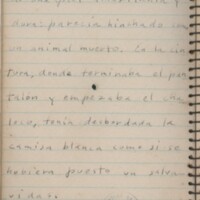 dura: parecía hinchado como
un animal muerto. En la cin
tura, donde terminaba el pan
talón y empezaba el cha
leco, tenía desbordada la
camisa blanca como si se
hubiera puesto un salva
vidas.